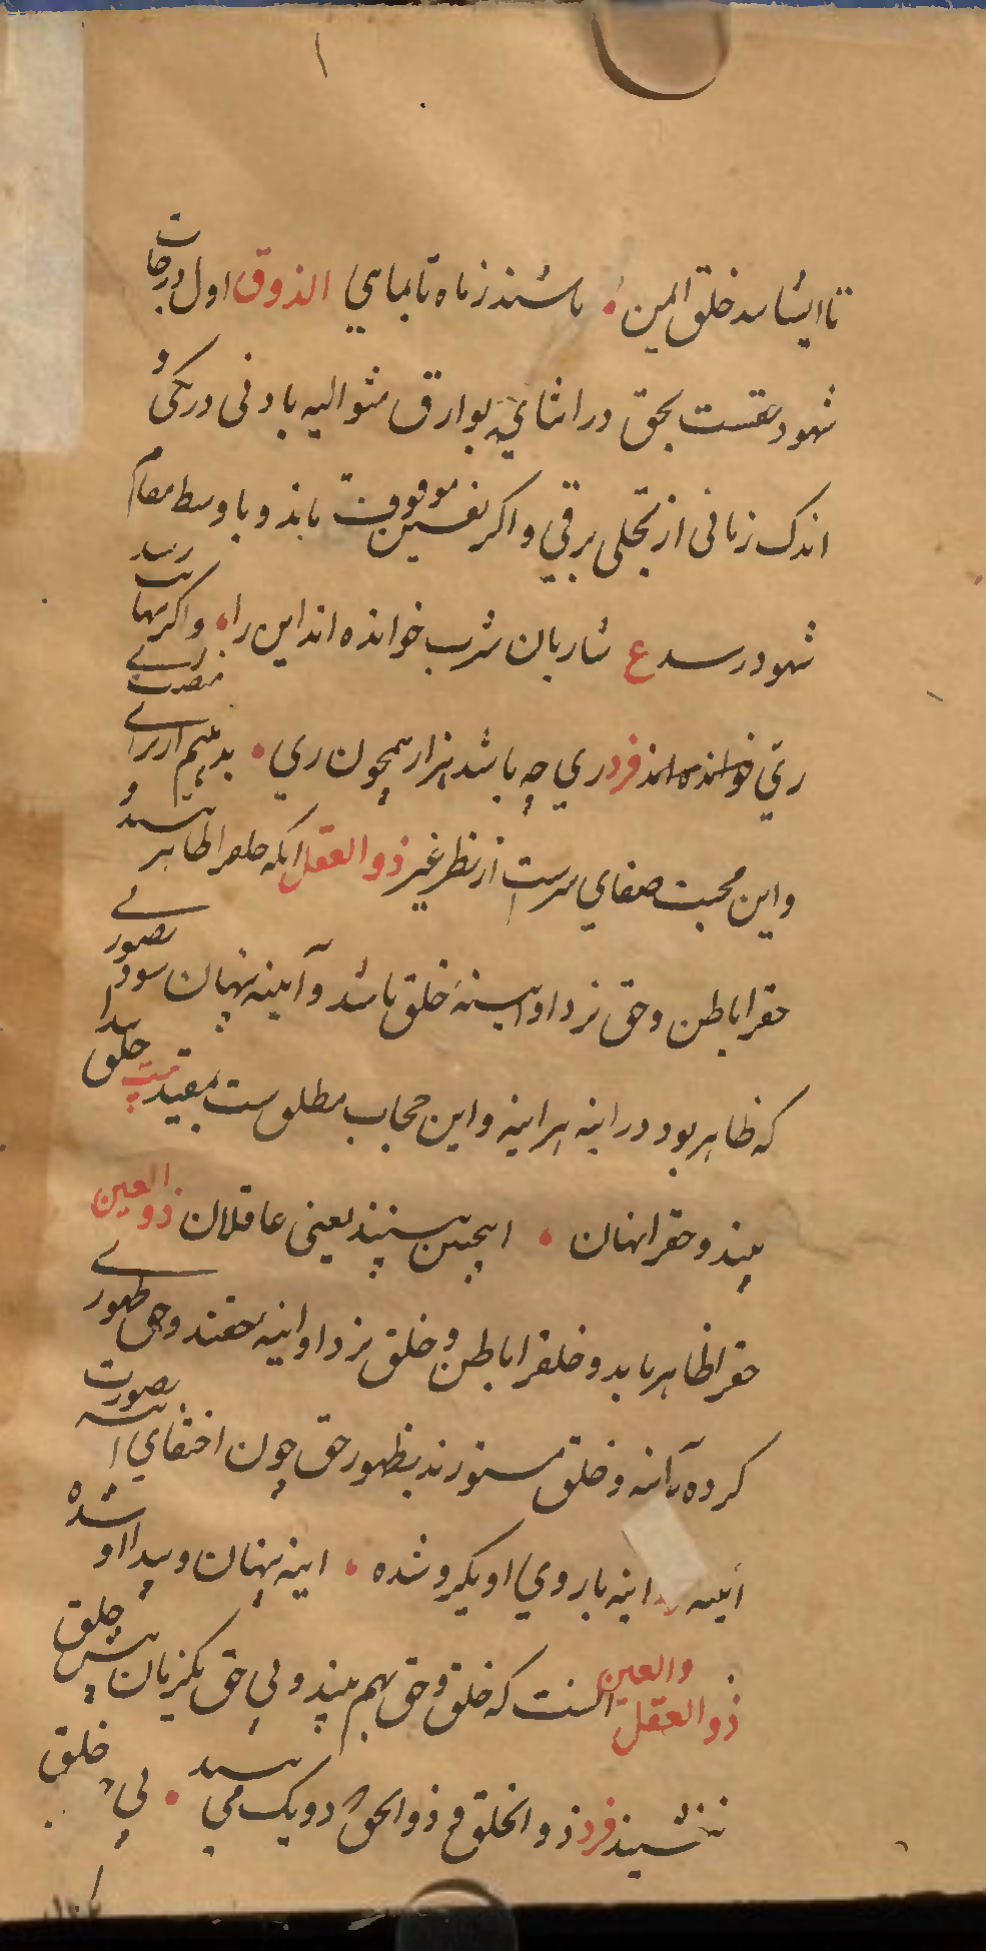 ۱
تا ایشانند خلق المین • باشند ز ماه تا بماهی الذوق اول درجات
شهود حقست بحق در اثنای بوارق متوالیه بادنی درنکی و
اندک زمانی از تجلی برقی و اکر نفسین موقوف ماند و باوسط مقام رسد
شهود رسد ع شاربان شرب خوانده اند این را • و اکر بنهایت رسد
ری خوانده اند فرد ری چه باشد هزار همچون ری • بدهیم از برای
و این محبت صفای سرست از نظر غیر ذو العقل آنکه خلقرا ظاهر بیند و
حقرا باطن و حق نزد او آیینه خلق باشد و آیینه پنهان شود بصورتی
که ظاهر بود در اینه هر اینه و این حجاب مطلوست بمقید بیت خلق پیدا
بیند و حقرا نهان • اینچنین بینند یعنی عاقلان ذو العین
حقرا ظاهر یابد و خلقرا باطن و خلق نزد او اینه حقند و حق ظهوری
کرده بآینه و خلق مستورند بظهور حق چون اختفای آینه بصورت
آینه اینه با روی او یکرو شده • اینه پنهان و پیدا او شده
ذو العقل والعین آنست که خلق و حق بهم بیند و بی حق یکزمان پیش خلق
ننشیند فرد ذو الخلق و ذو الحق دو یک می بیند • بی خلق